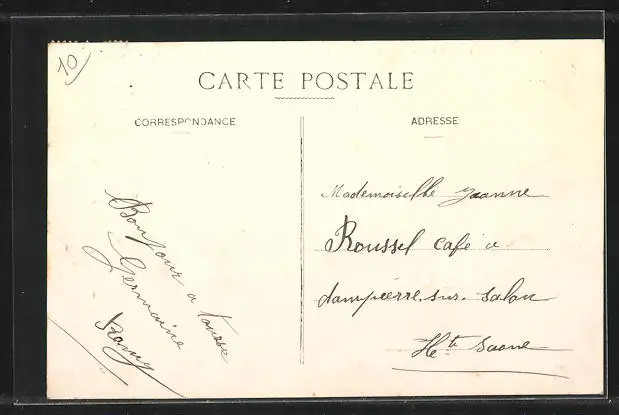 10
CARTE POSTALE
CORRESPONDANCE
ADRESSE
Bonjour a
Germaine
Mademoiselle Jeanne
Roussel café a
dampierre. sur. salon
Hte Saone